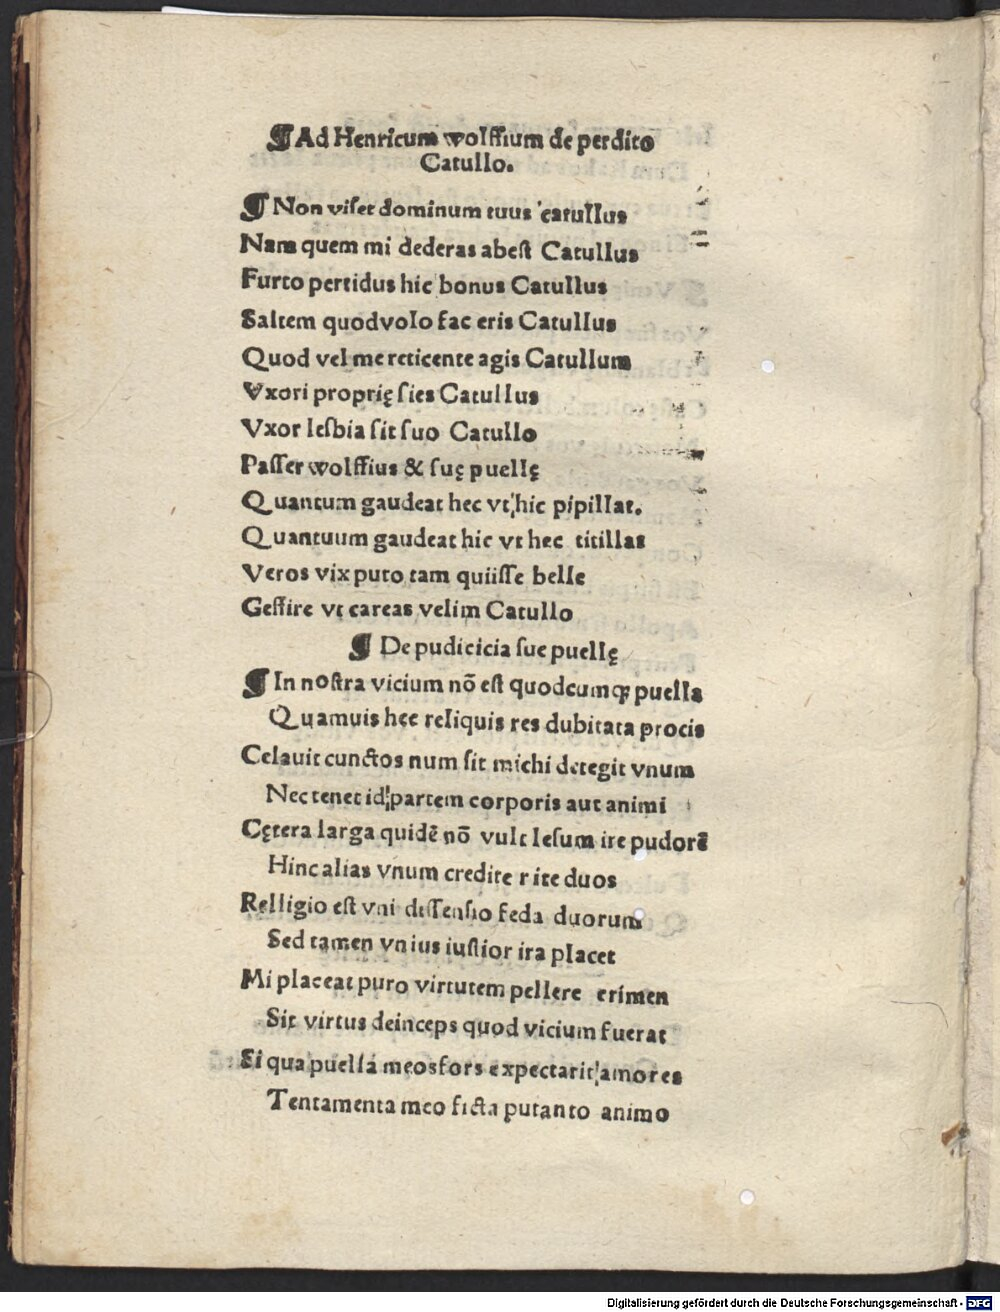 ¶Ad Henricum wolffium de perdito
Catullo.
¶ Non viset dominum tuus catullus
Nam quem mi dederas abest Catullus
Furto perridus hic bonus Catullus
Saltem quodvolo fac eris Catullus
Quod vel me reticente agis Catullum
Vxori proprię sies Catullus
Vxor lesbia sit suo Catullo
Passer wolffius & suę puellę
Quantum gaudeat hec vt hic pipillat.
Quantuum gaudeat hic vt hec titillas
Veros vix puto tam quiisse belle
Gessire vt careas velim Catullo
¶ De pudicicia sue puellę
¶ In nostra vicium nō est quodcumqȝ puella
Quamuis hec reliquis res dubitata procis
Celauit cunctos num sit michi detegit vnum
Nec tenet id partem corporis aut animi
Cętera larga quidē nō vult lesum ire pudorē
Hinc alias vnum credite rite duos
Relligio est vni dissensio feda duorum
Sed tamen vnius iustior ira placet
Mi placeat puro virtutem pellere crimen
Sit virtus deinceps quod vicium fuerat
Si qua puella meos fors expectarit amores
Tentamenta meo ficta putanto animo
Digitalisierung gefördert durch die Deutsche Forschungsgemeinschaft - DFG